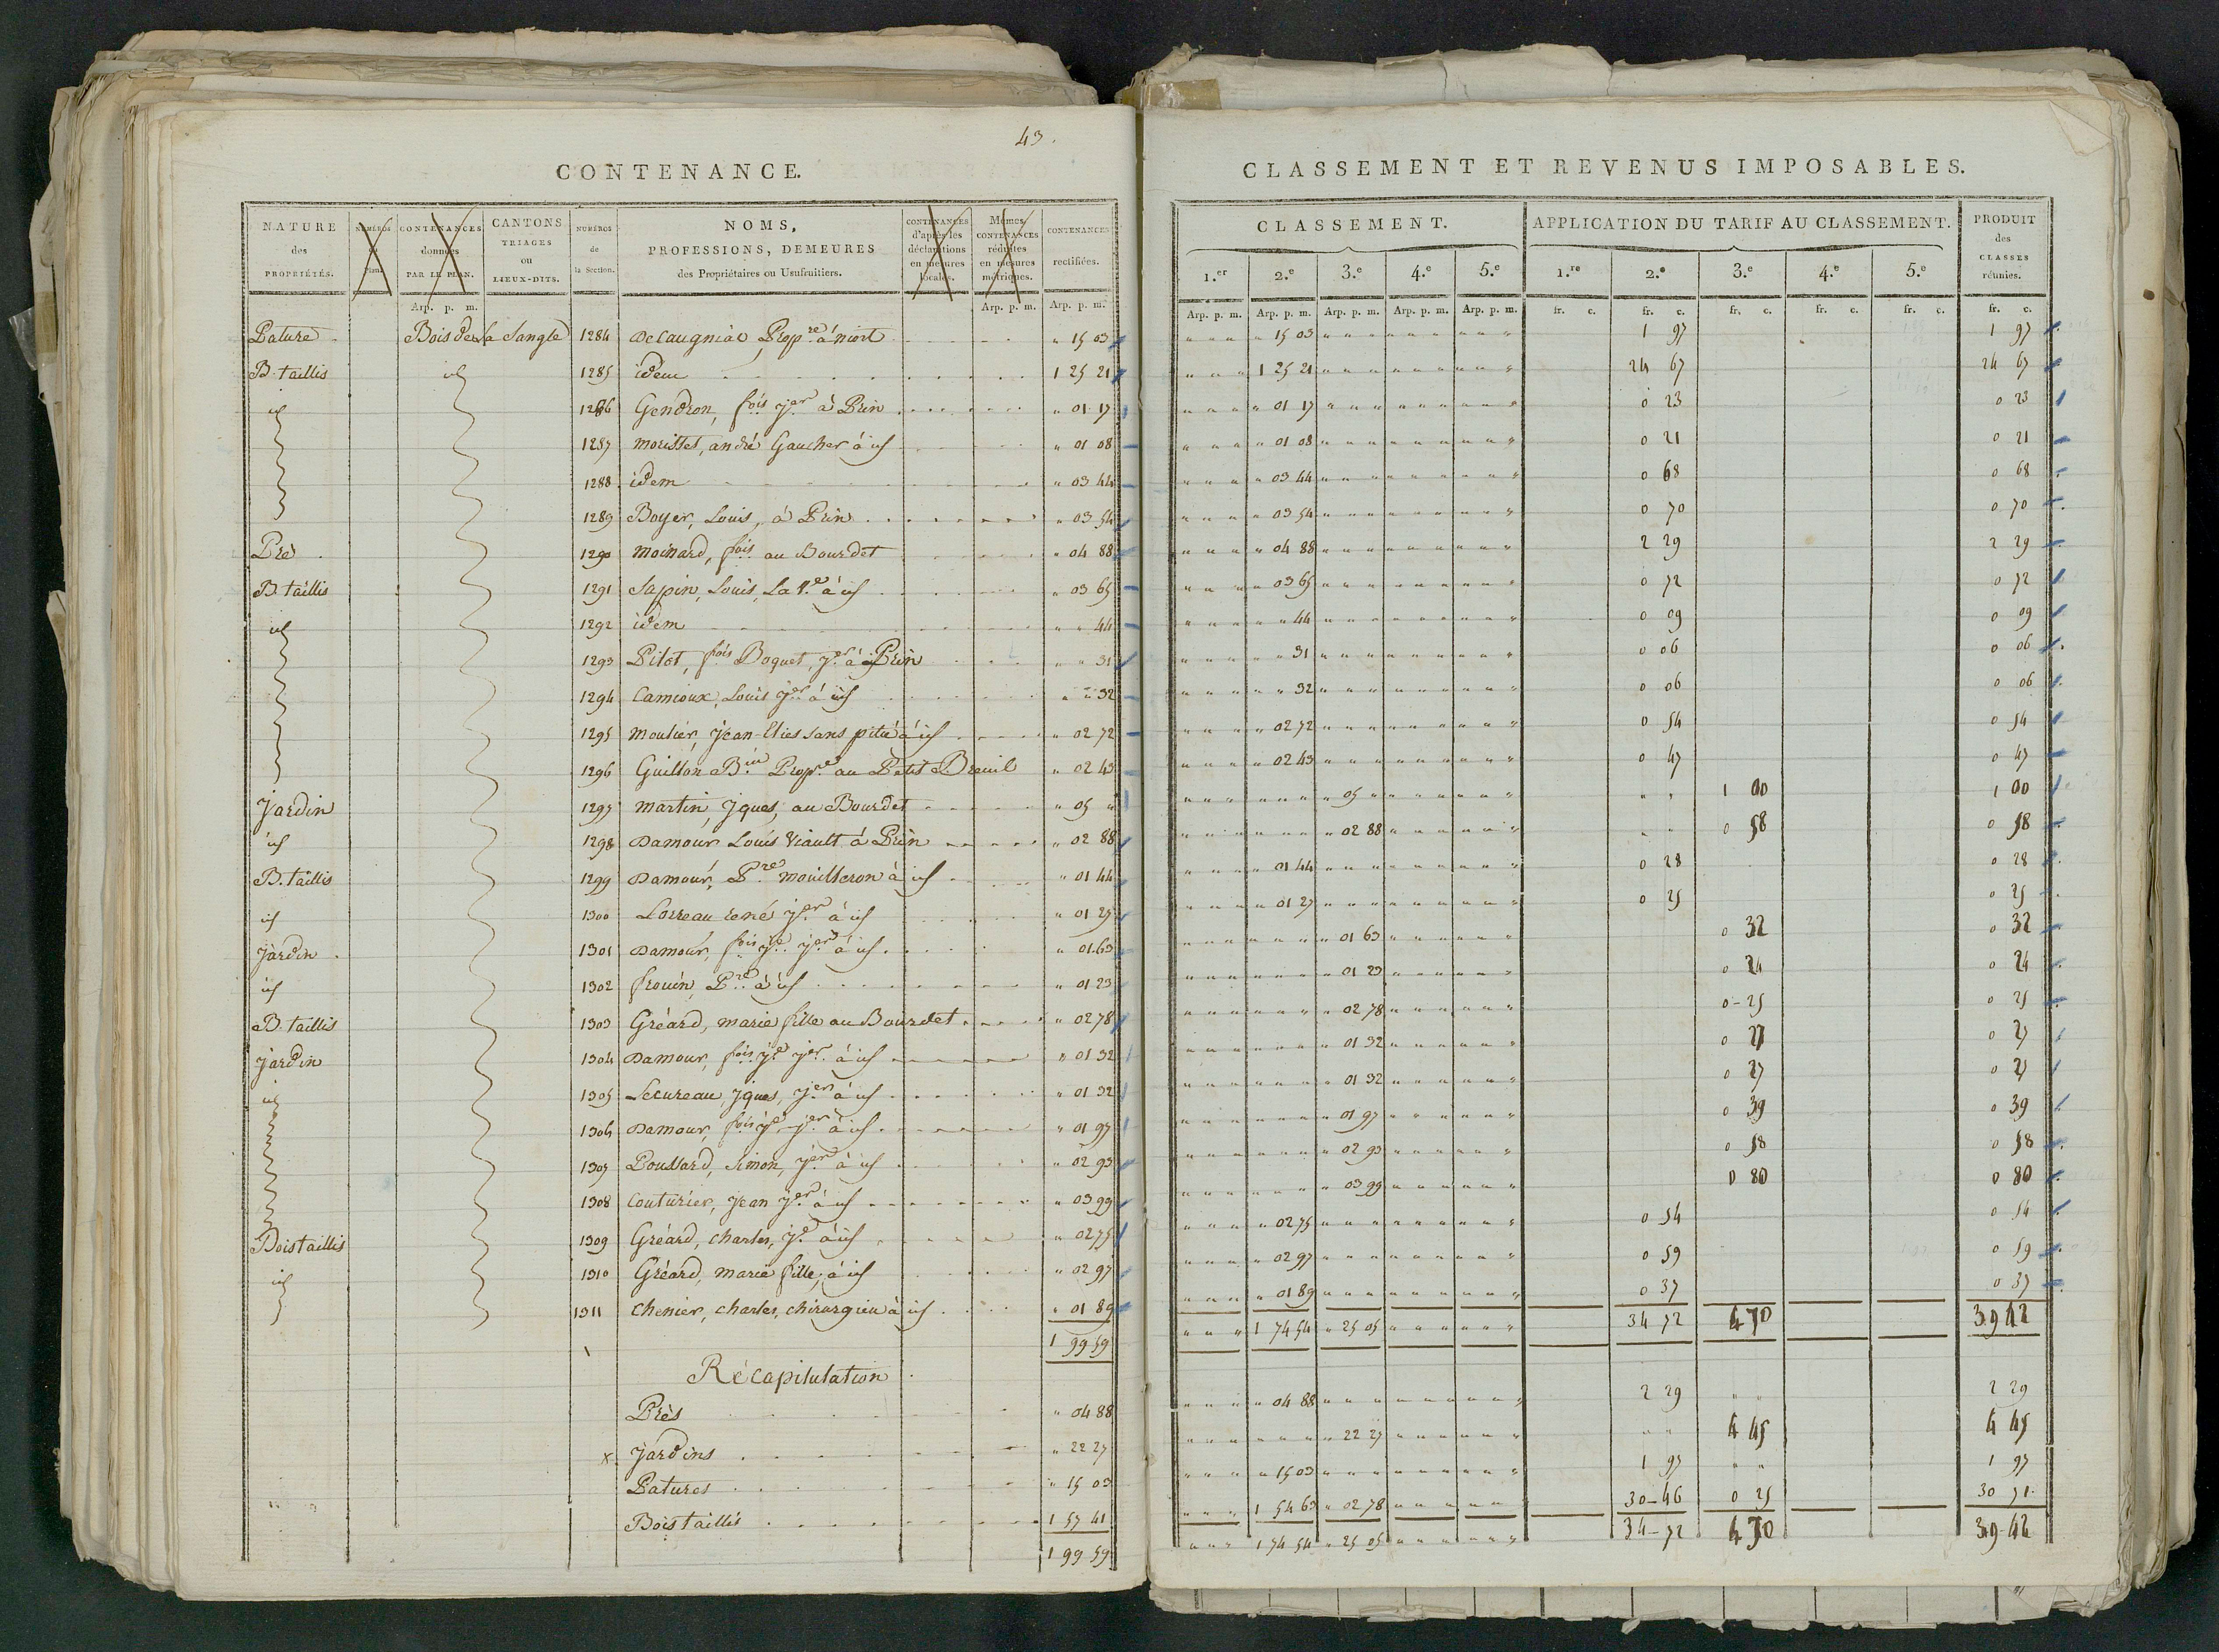 43.
CONTENANCE.
NATURE des PROPRIÉTÉS. NUMÉROS du Plan. CONTENANCES données PAR LE PLAN. CANTONS TRIAGES ou LIEUX-DITS. NUMÉROS de la Section. NOMS, PROFESSIONS, DEMEURES des Propriétaires ou Usufruitiers. CONTENANCES d'après les déclarations en mesures locales. Mêmes CONTENANCES réduites en mesures métriques. CONTENANCES rectifiées.
Arp. p. m. Arp. p. m. Arp. p. m.
Pature Bois de la Sangle 1284 Delaugniac Prop.re à niort " 15 03
B. taillis id 1285 idem 1 25 21
id 1286 Gendron, fois jer à Prin " 01 17
1287 morisset, andré Gaucher à id " 01 08
1288 idem " 03 44
1289 Boyer, Louis, à Prin " 03 54
Pré 1290 moinard, fois au Bourdet " 04 88
B. taillis 1291 Sapin, Louis, La Ve à id " 03 65
id 1292 idem " " 44
1293 Pilot, fois Boquet, jer à Prin " " 31
1294 Camioux, Louis jer à id " " 32
1295 moulier, jean-Elies sans pitié à id " 02 72
1296 Guillon Bin Propre au Petit Breuil " 02 43
Jardin 1297 martin, jques, au Bourdet " 05 "
id 1298 Damour Louis Viault à Prin " 02 88
B. taillis 1299 Damour, Pre mouilleron à id " 01 44
id 1300 Lorreau rené jer à id " 01 27
Jardin 1301 Damour, fois je jer à id " 01.63
id 1302 frouin, Pre à id " 01 23
B. taillis 1303 Gréard, marie fille au Bourdet " 02 78
Jardin 1304 Damour, fois je jer à id " 01 32
id 1305 Lecureau, jques, jer à id " 01 32
1306 Damour, fois je jer à id " 01 97
1307 Poussard, simon, jer à id " 02 93
1308 Couturier, jean jer à id " 03 99
Bois taillis 1309 Gréard, charles, je à id " 02 75
id 1310 Gréard, marie fille, à id " 02 97
1311 Chenier, charles, chirurgien à id " 01 89
1 99 59
Récapitulation
Près " 04 88
Jardins " 22 27
Patures " 15 03
Bois taillis 1 57 41
1 99 59
CLASSEMENT ET REVENUS IMPOSABLES.
CLASSEMENT. APPLICATION DU TARIF AU CLASSEMENT. PRODUIT des CLASSES réunies.
1.er 2.e 3.e 4.e 5.e 1.re 2.e 3.e 4.e 5.e
Arp. p. m. Arp. p. m. Arp. p. m. Arp. p. m. Arp. p. m. fr. c. fr. c. fr. c. fr. c. fr. c. fr. c.
" 15 03 1 97 1 97
1 25 21 24 67 24 67
" 01 17 0 23 0 23
" 01 08 0 21 0 21
" 03 44 0 68 0 68
" 03 54 0 70 0 70
" 04 88 2 29 2 29
" 03 65 0 72 0 72
" " 44 0 09 0 09
" " 31 0 06 0 06
" " 32 0 06 0 06
" 02 72 0 54 0 54
" 02 43 0 47 0 47
" 05 " " " 1 00 1 00
" 02 88 " " 0 58 0 58
" 01 44 0 28 0 28
" 01 27 0 25 0 25
" 01 63 0 32 0 32
" 01 23 0 24 0 24
" 02 78 0-25 0 25
" 01 32 0 27 0 27
" 01 32 0 27 0 27
" 01 97 0 39 0 39
" 02 93 0 58 0 58
" 03 99 0 80 0 80
" 02 75 0 54 0 54
" 02 97 0 59 0 59
" 01 89 0 37 0 37
1 74 54 " 25 05 34 72 4 70 39 42
" 04 88 2 29 " " 2 29
" 22 27 " " 4 45 4 45
" 15 03 1 97 " " 1 97
1 54 63 " 02 78 30-46 0 25 30 71
1 74 54 " 25 05 34-72 4 70 39-42